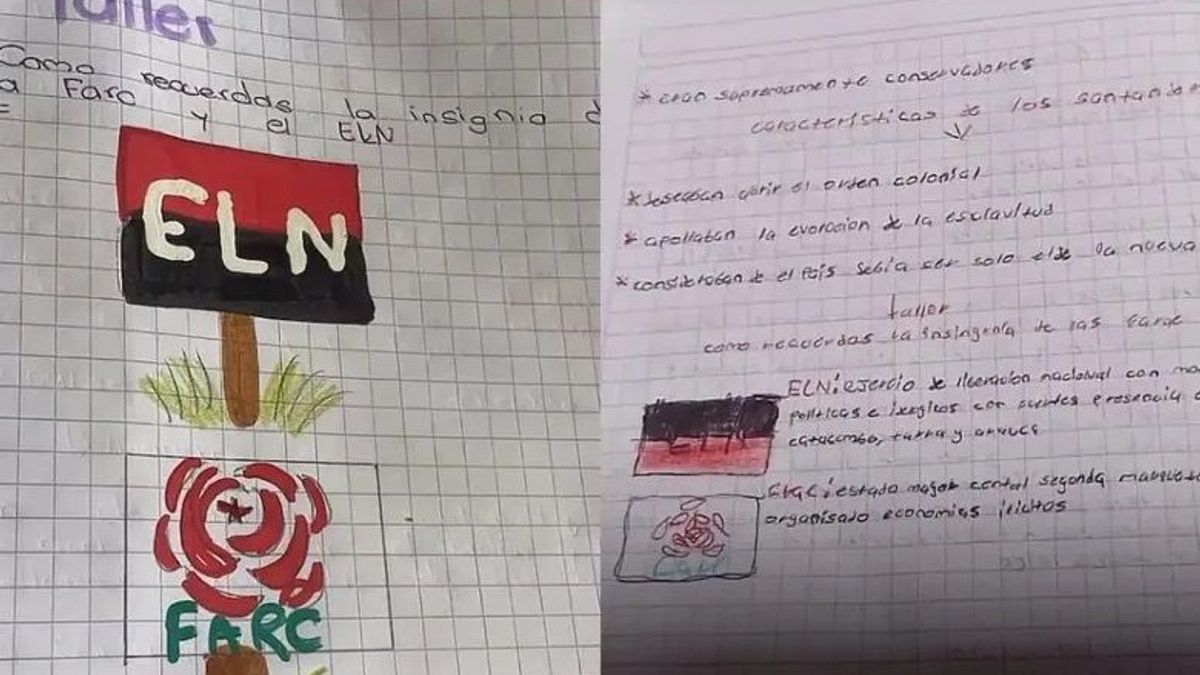 Taller
Como recuerdas la insignia d
a Farc y el ELN
ELN
FARC
* eran supremamente conservadores
características de los santander
* deseaban abrir el orden colonial
* apollaban la evoracion de la esclavitud
* consideraban el país debia ser solo la nueva
taller
como recuerdas la insingenia de las
ELN: ejercio de liberacion nacional con
politicas e presencia
tarra y arauca
ELN
estado mayor central segunda
organisado economias ilicitas